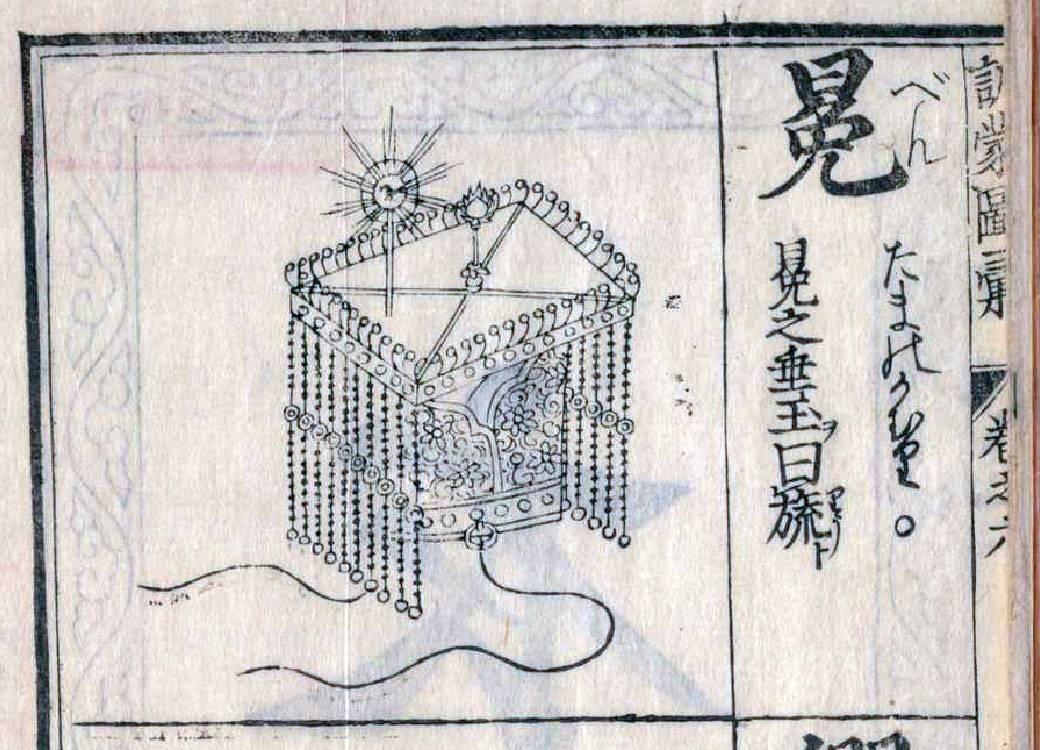 訓蒙圖彙 巻之六
冕
べん
たまのかむり。
冕之垂玉ヲ曰旒